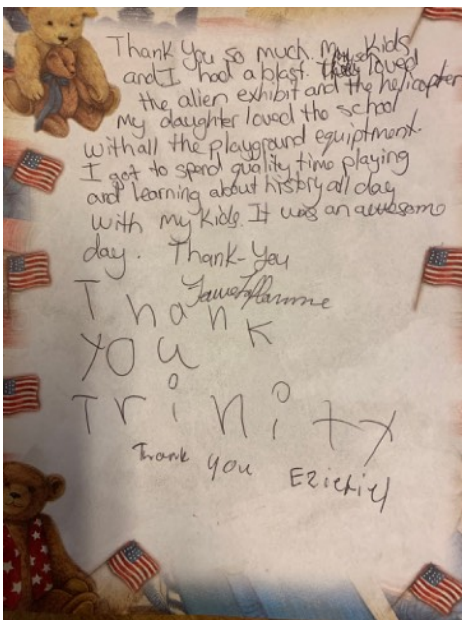 Thank You so much. My Kids
and I had a blast. loved
the alien exhibit and the helicopter
my daughter loved the school
with all the playground equiptment.
I got to spend quality time playing
and learning about history all day
with my kids. It was an awesome
day. Thank-You
Thank
you
Trinity
Thank you Eziekiel